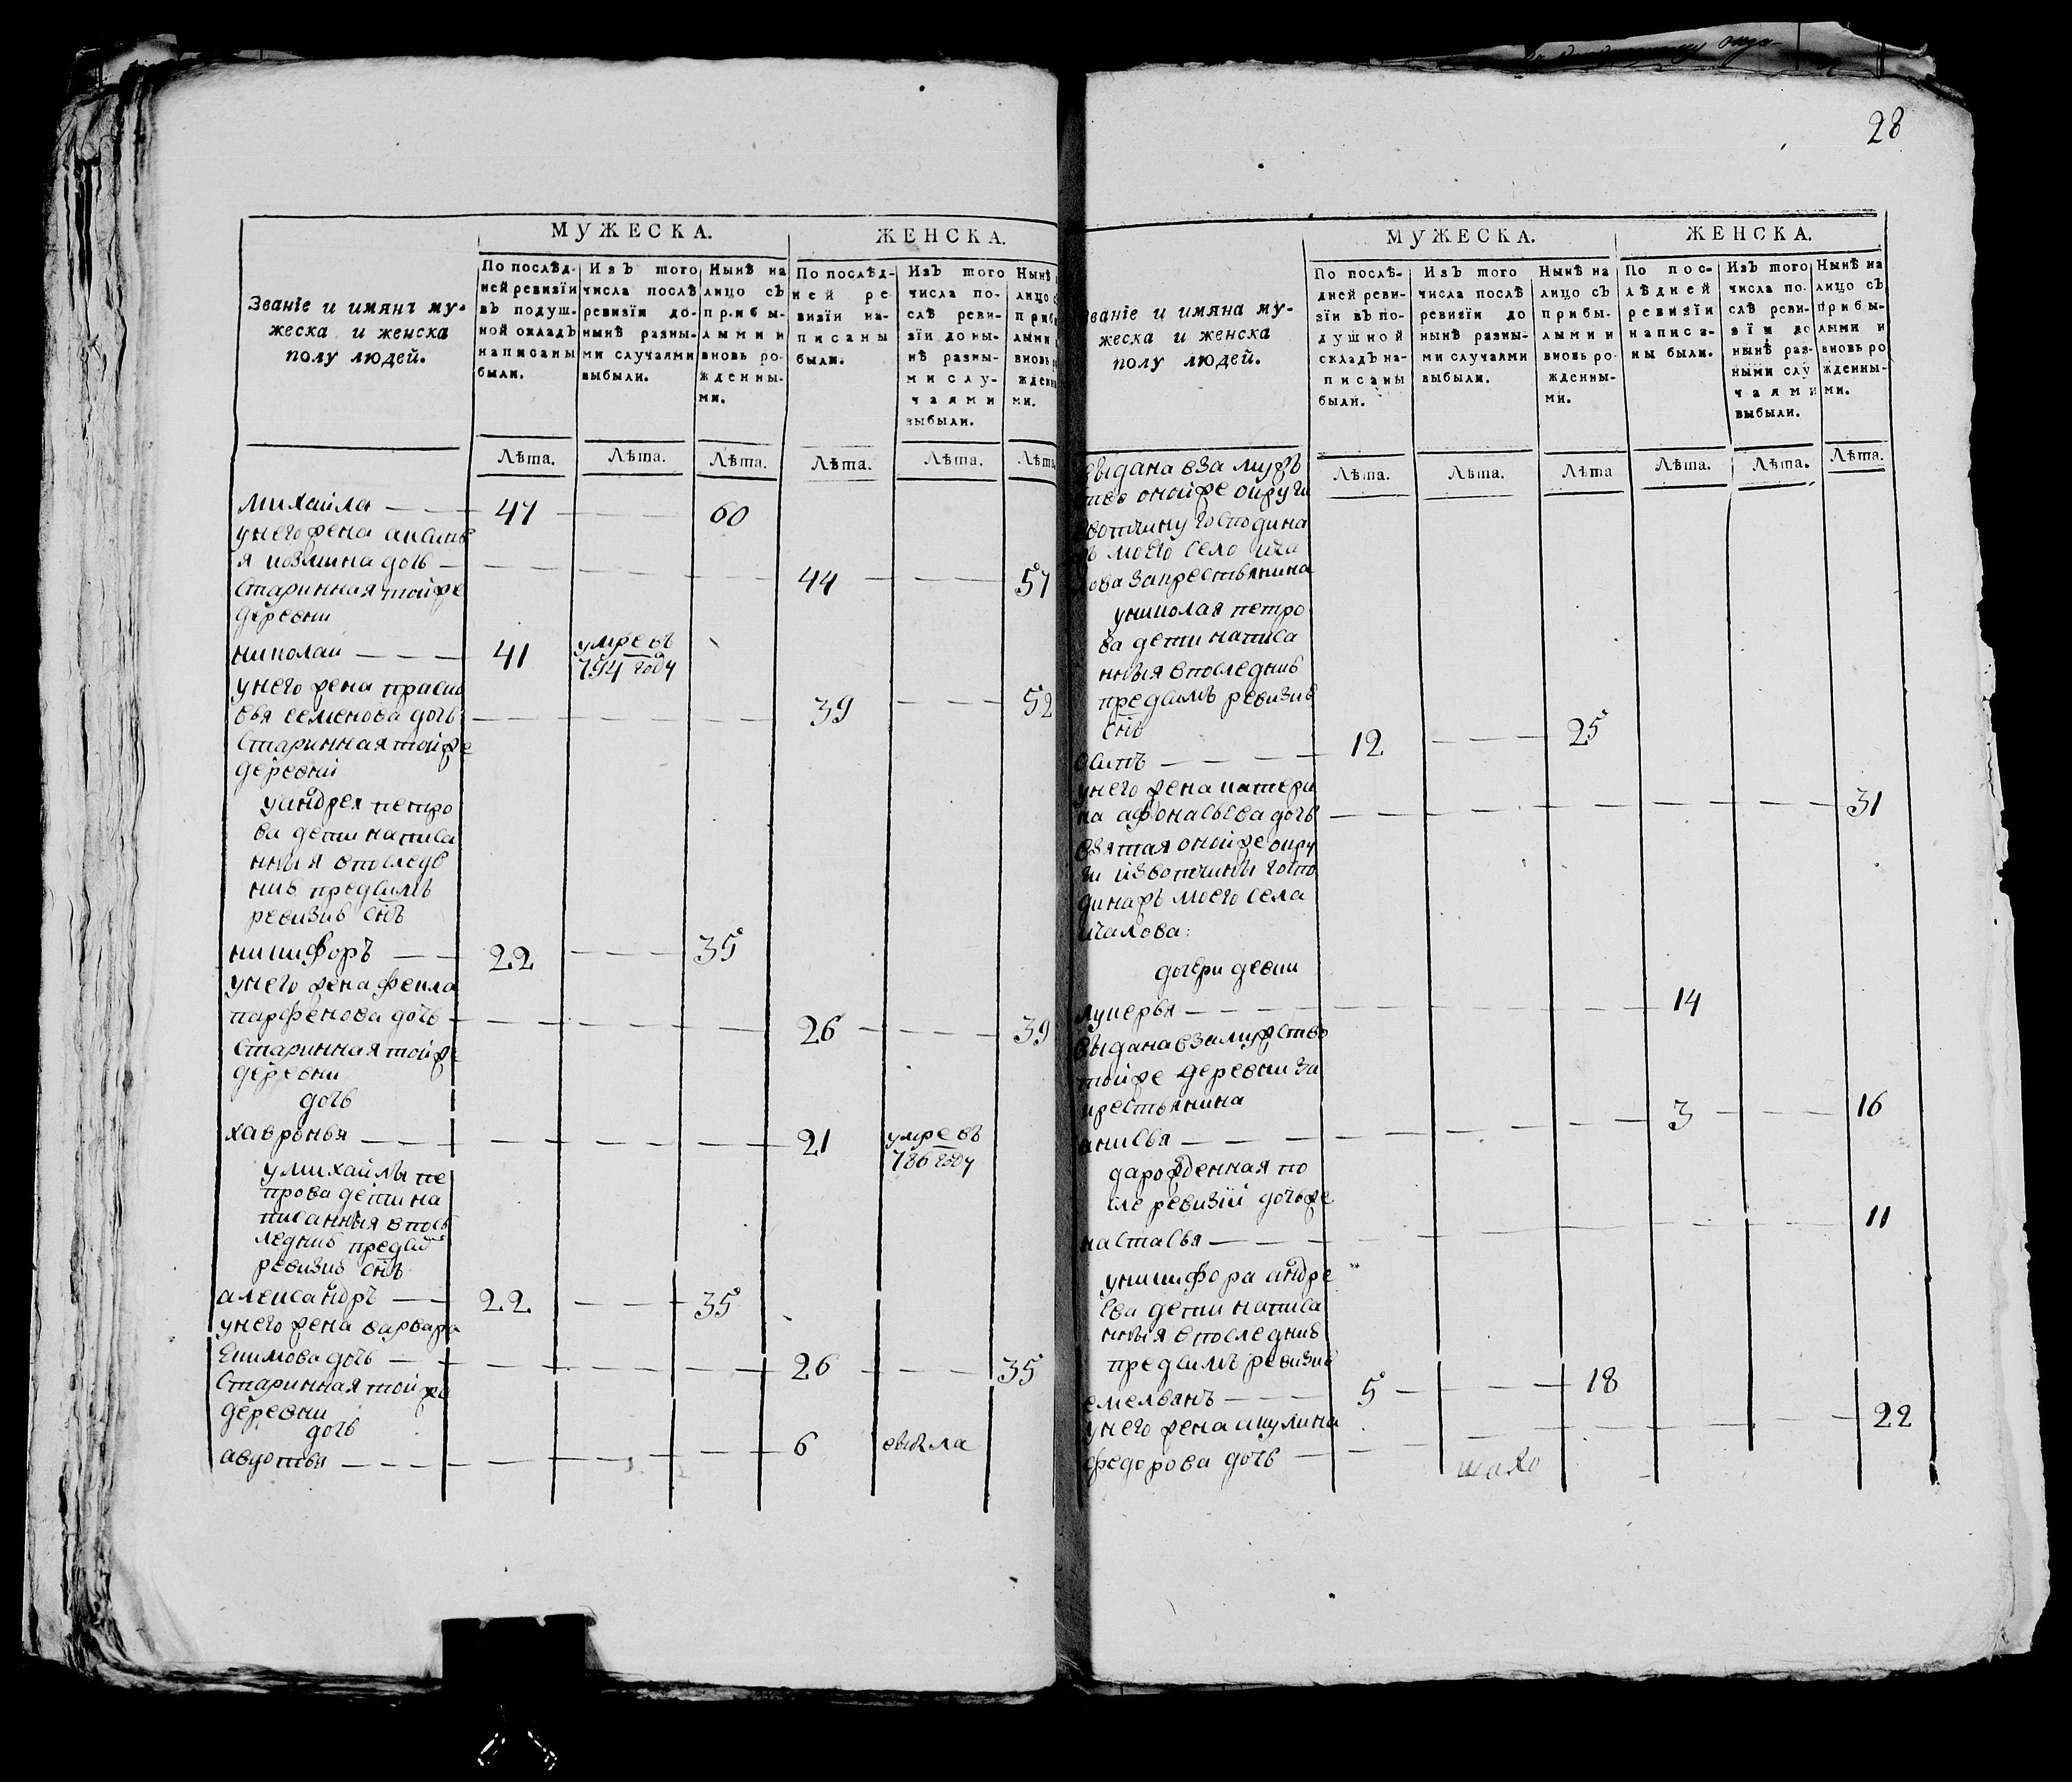 28
МУЖЕСКА.
ЖЕНСКА.
Званїе и имянъ му-
жеска и женска
полу людей.
По послѣд-
ней ревизїи
въ подуш-
ной окладъ
написаны
были.
Изъ того
числа послѣ
ревизїи до-
нынѣ разны-
ми случаями
выбыли.
Нынѣ на
лицо съ
прибы-
лыми и
вновь ро-
жденны-
ми.
По послѣд-
ней ре
визїи на-
писаны
были.
Изъ того
числа по-
слѣ реви-
зїи до ны-
нѣ разны-
ми слу-
чаями
выбыли.
Нынѣ
лицо
приб
лыми
вновь
жденн
ми.
Лѣта.
Лѣта.
Лѣта.
Лѣта.
Лѣта.
Лѣта.
михаила — 47 — 60
унего жена аксинь
я козмина дочь — 44 — 57
старинная тойже
деревни
николаи — 41 умре въ
794 году
унего жена праско
вья семенова дочь — 39 — 52
старинная тойже
деревни
уандрея петро
ва дети написа
нныя впослед
ней предсимъ
ревизие снъ
никифоръ — 22 — 35
унего жена фекла
парфенова дочь — 26 — 39
старинная тойже
деревни
дочь
хавронья — 21 умре въ
786 году
умихайлы пе
трова дети на
писанныя впос
ледние предси
ревизие снъ
александръ — 22 — 35
унего жена варвара
екимова дочь — 26 — 35
старинная тойже
деревни
дочь
авдотья — 6
МУЖЕСКА.
ЖЕНСКА.
Званїе и имяна му-
жеска и женска
полу людей.
По послѣ-
дней реви-
зїи въ по-
душной
складъ на-
писаны
были.
Изъ того
числа послѣ
ревизїи до
нынѣ разны-
ми случаями
выбыли.
Нынѣ на
лицо съ
прибы-
лыми и
вновь ро-
жденны-
ми.
По пос-
лѣдней
ревизїи
написа-
ны были.
Изъ того
числа по-
слѣ реви-
зїи до
нынѣ раз-
ными слу
чаями
выбыли.
Нынѣ на
лицо съ
прибы-
лыми и
вновь ро
жденны-
ми.
Лѣта.
Лѣта.
Лѣта
Лѣта.
Лѣта.
Лѣта.
выдана вза муж
ство онойже округи
вотчину господина
моего село
за крестьянина
униколая петро
ва дети написа
нныя впоследние
предсимъ ревизие
снъ
осипъ — 12 — 25
унего жена катери
на афонасьева дочь — 31
взятая онойже окру
ги извотчины госпо
динаж моего села
дочери девки
лукерья — 14
выдана взамужство
тойже деревни за
крестьянина
анисья — 3 — 16
дарожденная по
сле ревизий дочь же
настасья — 11
уникифора андре
ева дети написа
нныя впоследние
предсимъ ревизие
емельянъ — 5 — 18
унего жена акулина
федорова дочь — 22